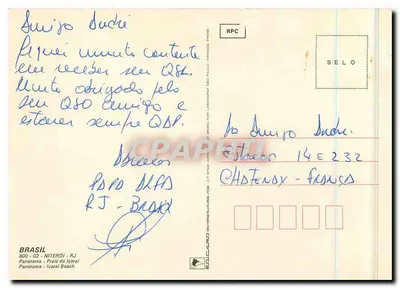 Amigo André
Fiquei muito contente
em receber seu QSL.
Muito obrigado pelo
seu QSO amigo e
estarei sempre QAP.
Abraços
PAPA ALFA
RJ - BRAXX
BRASIL
800 - 03 - NITERÓI - RJ
Panorama - Praia de Icaraí
Panorama - Icaraí Beach
EDICARD
RPC
SELO
Ao Amigo André.
14 E 232
CHATENAY - FRANÇA